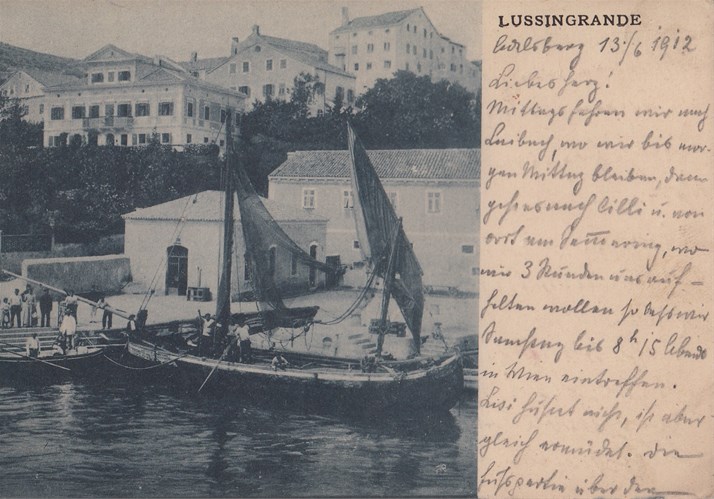 LUSSINGRANDE
Adelsberg 13./6 1912
Liebes Herz!
Mittags fahren wir nach
Laibach, wo wir bis mor-
gen Mittag bleiben, dann
geht es nach Cilli u. von
dort am Semmering, wo
wir 3 Stunden uns auf-
halten wollen so dass wir
Samstag bis 8h/5 Abends
in Wien eintreffen.
Lisi hustet nicht, ist aber
gleich ermüdet. Die
Fußpartie über den